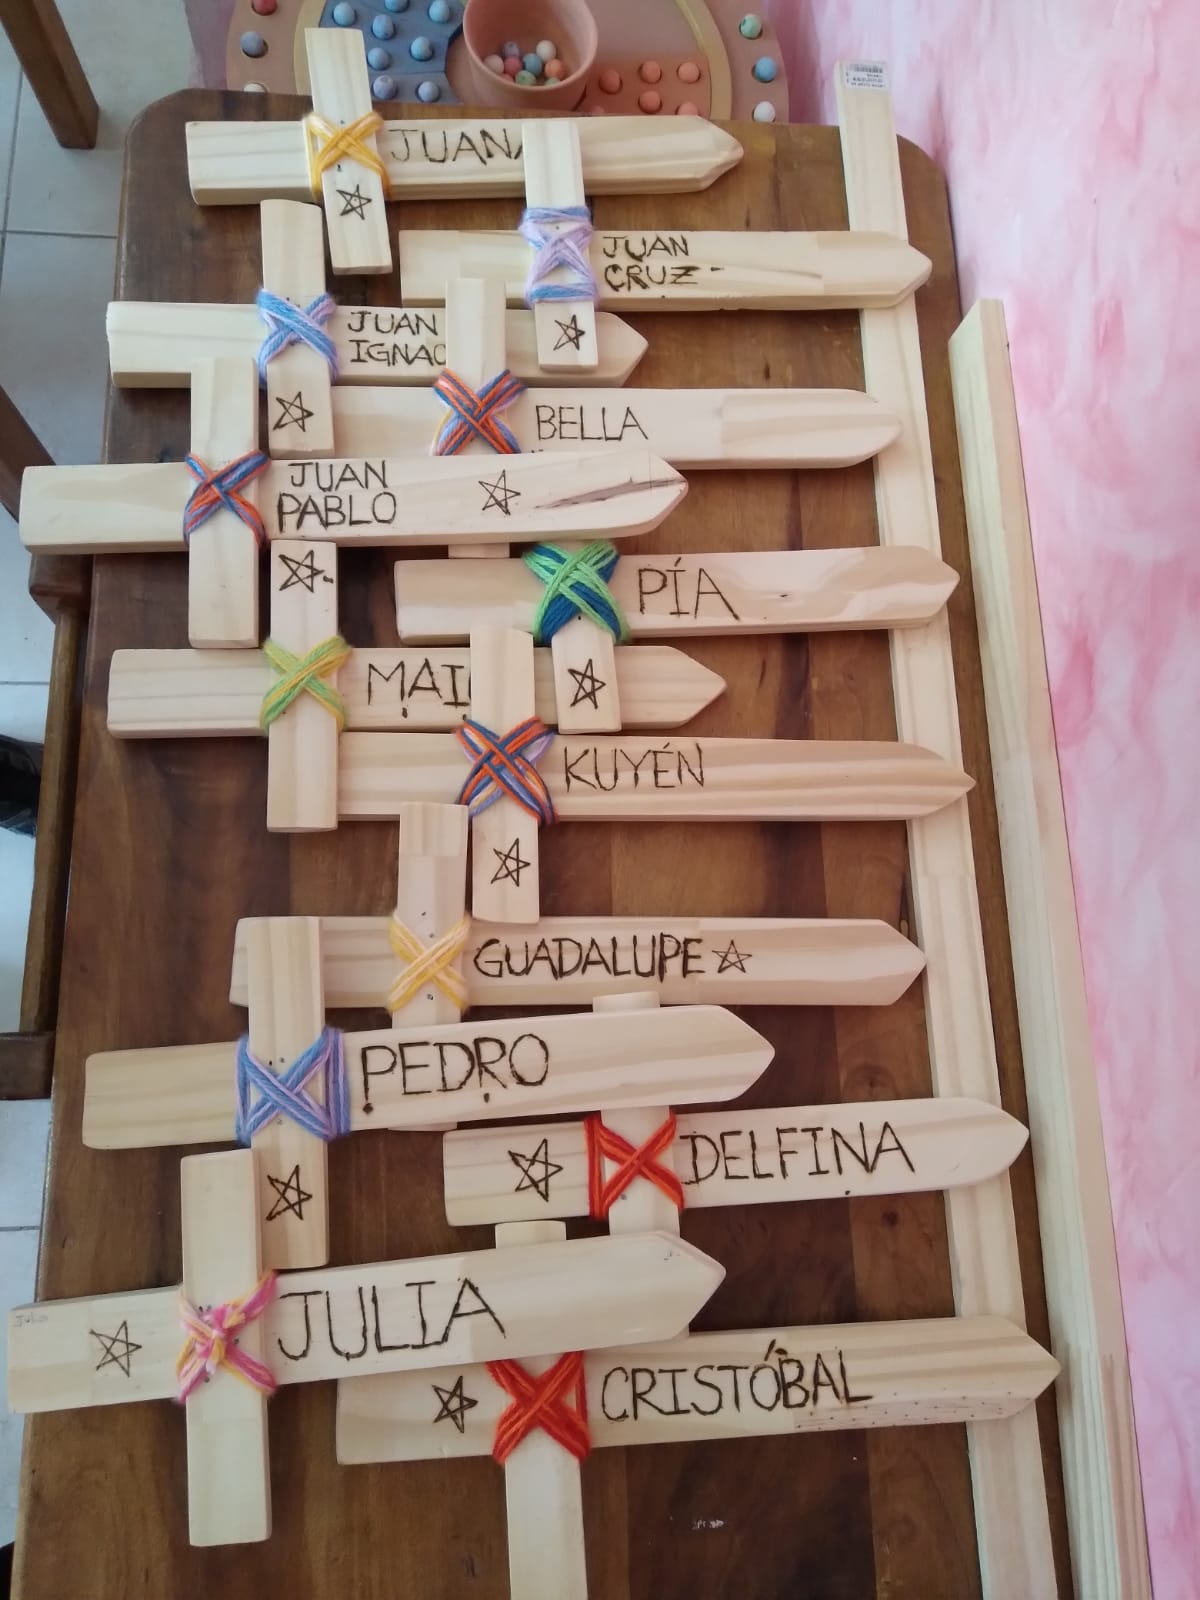 JUANA
JUAN
CRUZ
JUAN
IGNAC
BELLA
JUAN
PABLO
PÍA
MAI
KUYÉN
GUADALUPE
PEDRO
DELFINA
JULIA
CRISTÓBAL